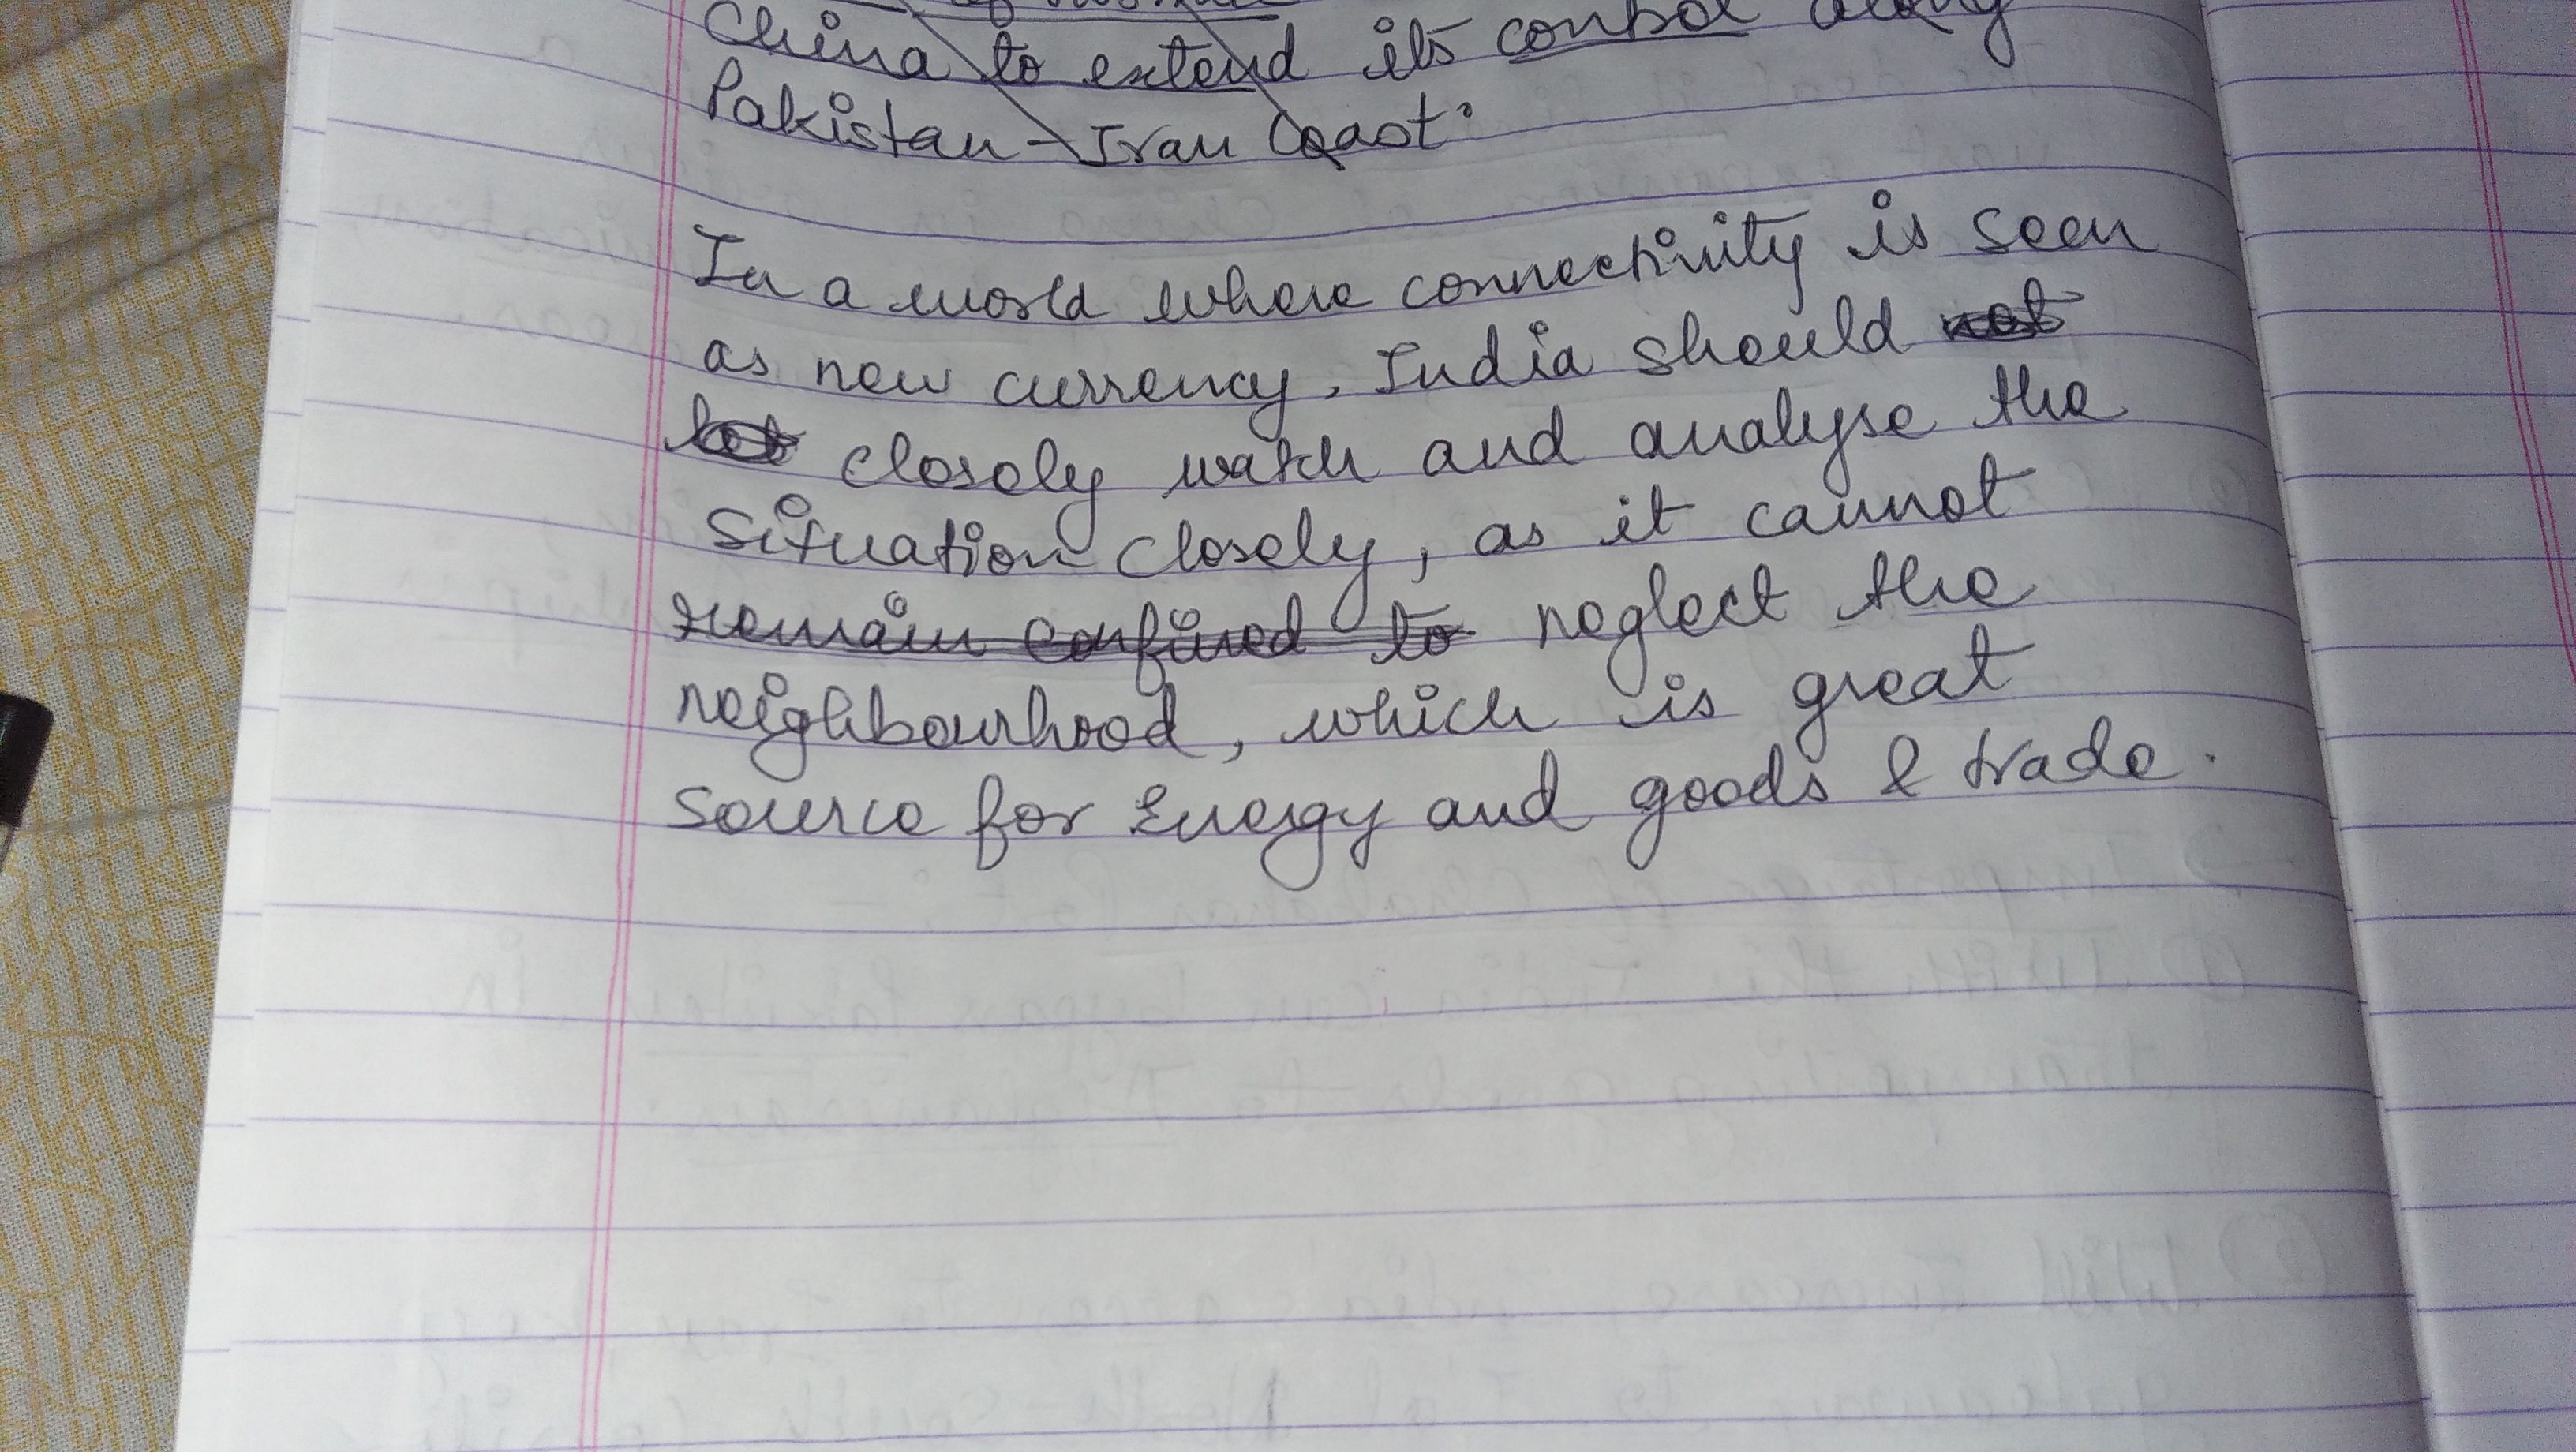 China to extend its control along
Pakistan - Iran Coast.
In a world where connectivity is seen
as new currency, India should not
let closely watch and analyse the
situation closely, as it cannot
remain confined to neglect the
neighbourhood, which is great
source for Energy and goods & trade.